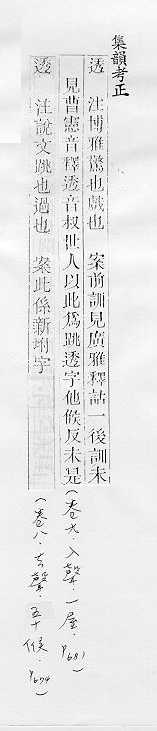 集韻考正
透　注博雅驚也嬈也　案前訓見廣雅釋詁一後訓未
見曹憲音釋透音叔世人以此爲跳透字他候反未是
(卷九．入聲．一屋．P681)
透　注說文跳也過也　案此係新坿字
(卷八．去聲．五十候．P674)